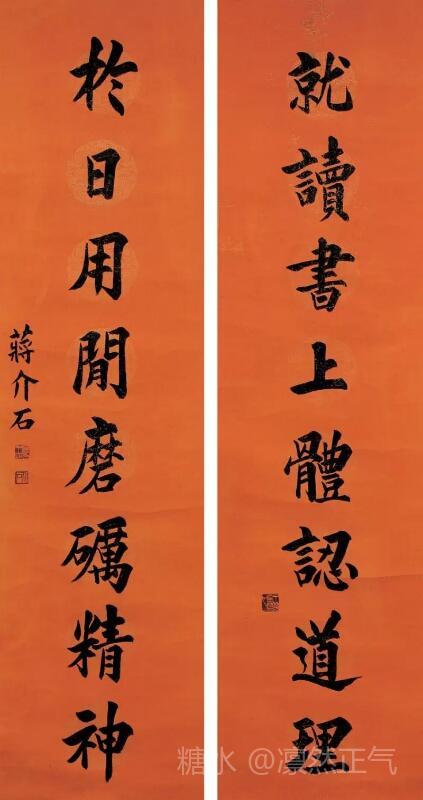 就讀書上體認道理
於日用閒磨礪精神
蔣介石
糖水 @凛法正气